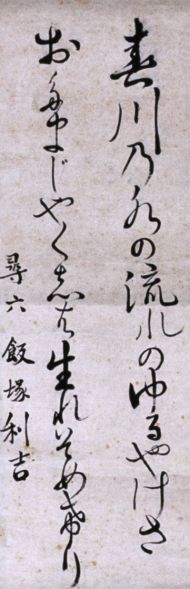 春川乃水の流れのゆるやけさ
おたまじやくしは生れそめけり
尋六 飯塚利吉